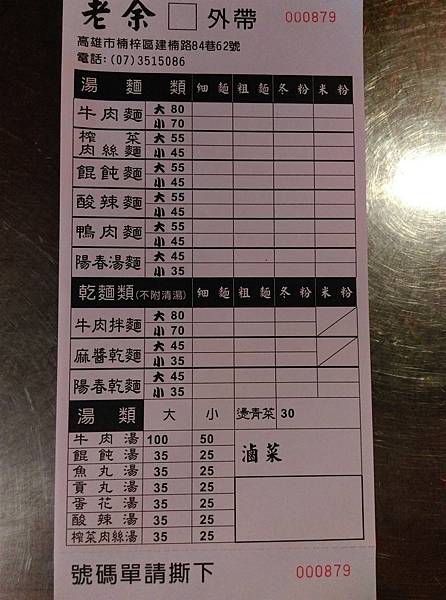 老余 □ 外帶 000879
高雄市楠梓區建楠路84巷62號
電話:(07)3515086
湯麵類 細麵 粗麵 冬粉 米粉
牛肉麵 大 80
小 70
榨菜肉絲麵 大 55
小 45
餛飩麵 大 55
小 45
酸辣麵 大 55
小 45
鴨肉麵 大 55
小 45
陽春湯麵 大 45
小 35
乾麵類(不附清湯) 細麵 粗麵 冬粉 米粉
牛肉拌麵 大 80
小 70
麻醬乾麵 大 45
小 35
陽春乾麵 大 45
小 35
湯類 大 小 燙青菜 30
牛肉湯 100 50
滷菜
餛飩湯 35 25
魚丸湯 35 25
貢丸湯 35 25
蛋花湯 35 25
酸辣湯 35 25
榨菜肉絲湯 35 25
號碼單請撕下 000879